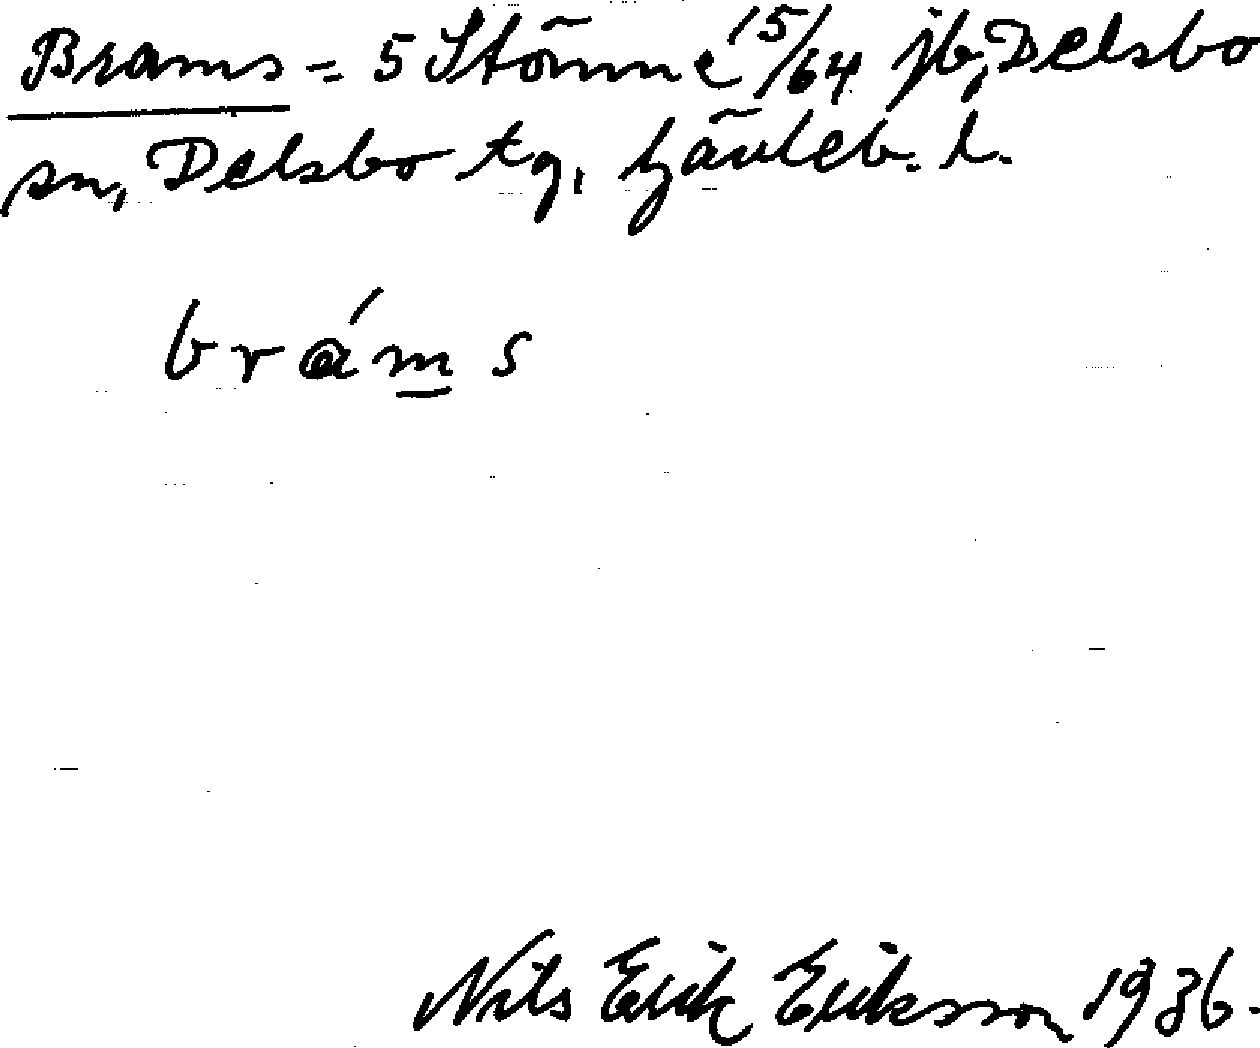 Brams = 5 Stömne 15/64 jb, Delsbo
sn, Delsbo tg, Gävleb. l.
bráms
Nils Erik Eriksson 1936.